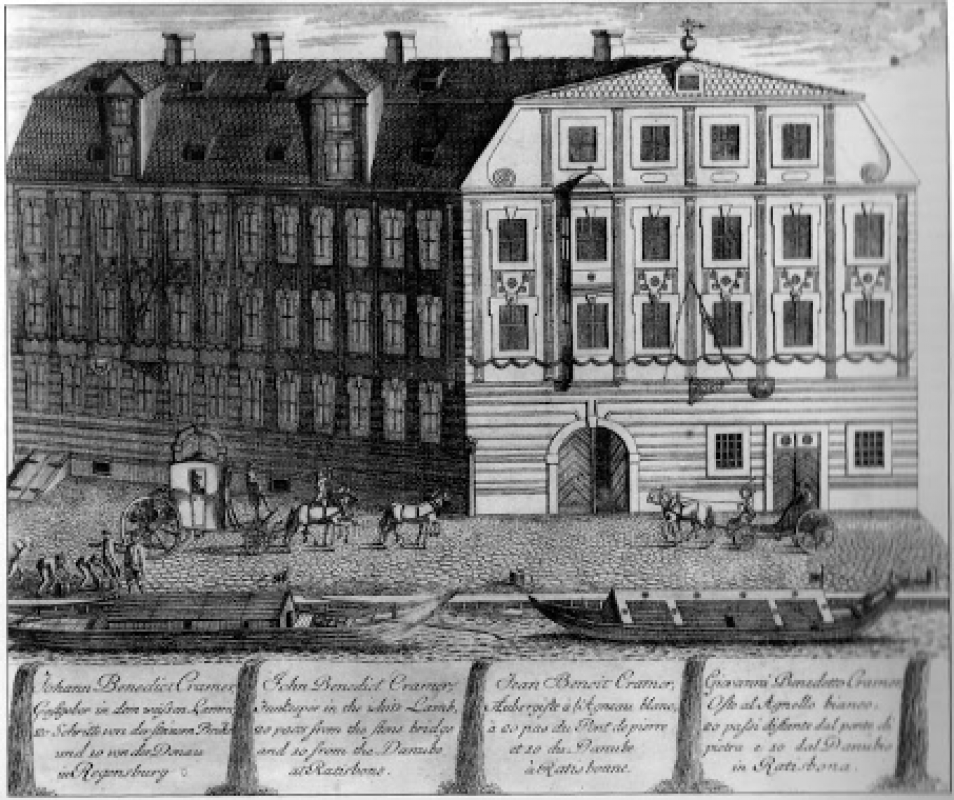 Johann Benedict Cramer,
Gastgeber in dem weisen Lamm,
20 Schritte von der steinern Bruck
und 10 von der Donau
in Regensburg
John Benedict Cramer,
Innkeper in the white Lamb,
20 paces from the stone bridge
and 10 from the Danube
at Ratisbone.
Jean Benoit Cramer,
Aubergiste à l'Agneau blanc,
à 20 pas du Pont de pierre
et 10 du Danube
à Ratisbonne.
Giovanni Benedetto Cramer
Oste al Agnello bianco,
20 passi distante dal ponte di
pietra e 10 dal Danubio
in Ratisbona.